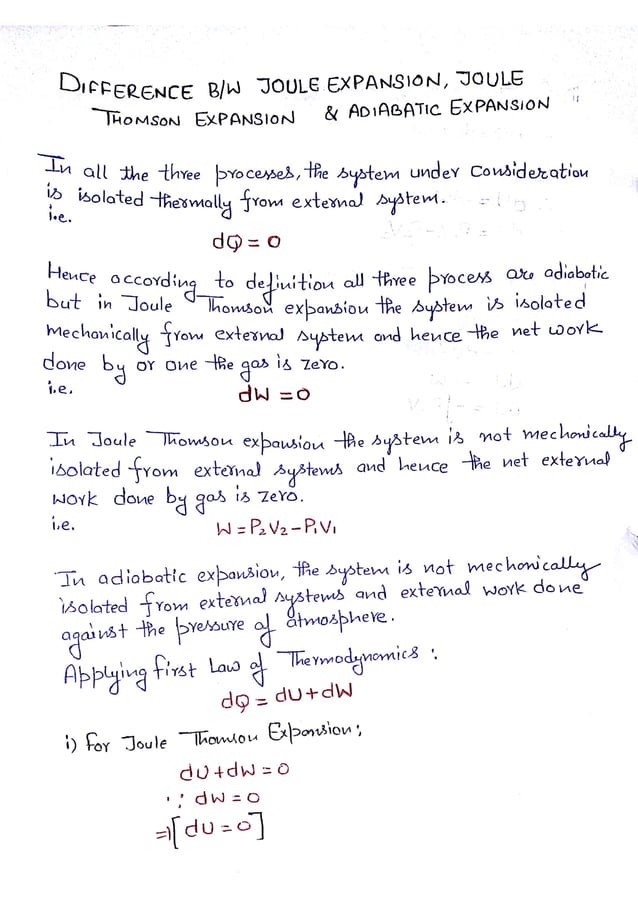 DIFFERENCE B/W JOULE EXPANSION, JOULE
THOMSON EXPANSION & ADIABATIC EXPANSION
In all the three processes, the system under consideration
is isolated thermally from external system.
i.e.
dQ = 0
Hence according to definition all three process are adiabatic
but in Joule Thomson expansion the system is isolated
mechanically from external system and hence the net work
done by or one the gas is zero.
i.e.
dW = 0
In Joule Thomson expansion the system is not mechanically
isolated from external systems and hence the net external
work done by gas is zero.
i.e.
W = P2V2 - P1V1
In adiabatic expansion, the system is not mechanically
isolated from external systems and external work done
against the pressure of atmosphere.
Applying first Law of Thermodynamics :
dQ = dU + dW
i) For Joule Thomson Expansion:
dU + dW = 0
∵ dW = 0
⇒ [dU = 0]